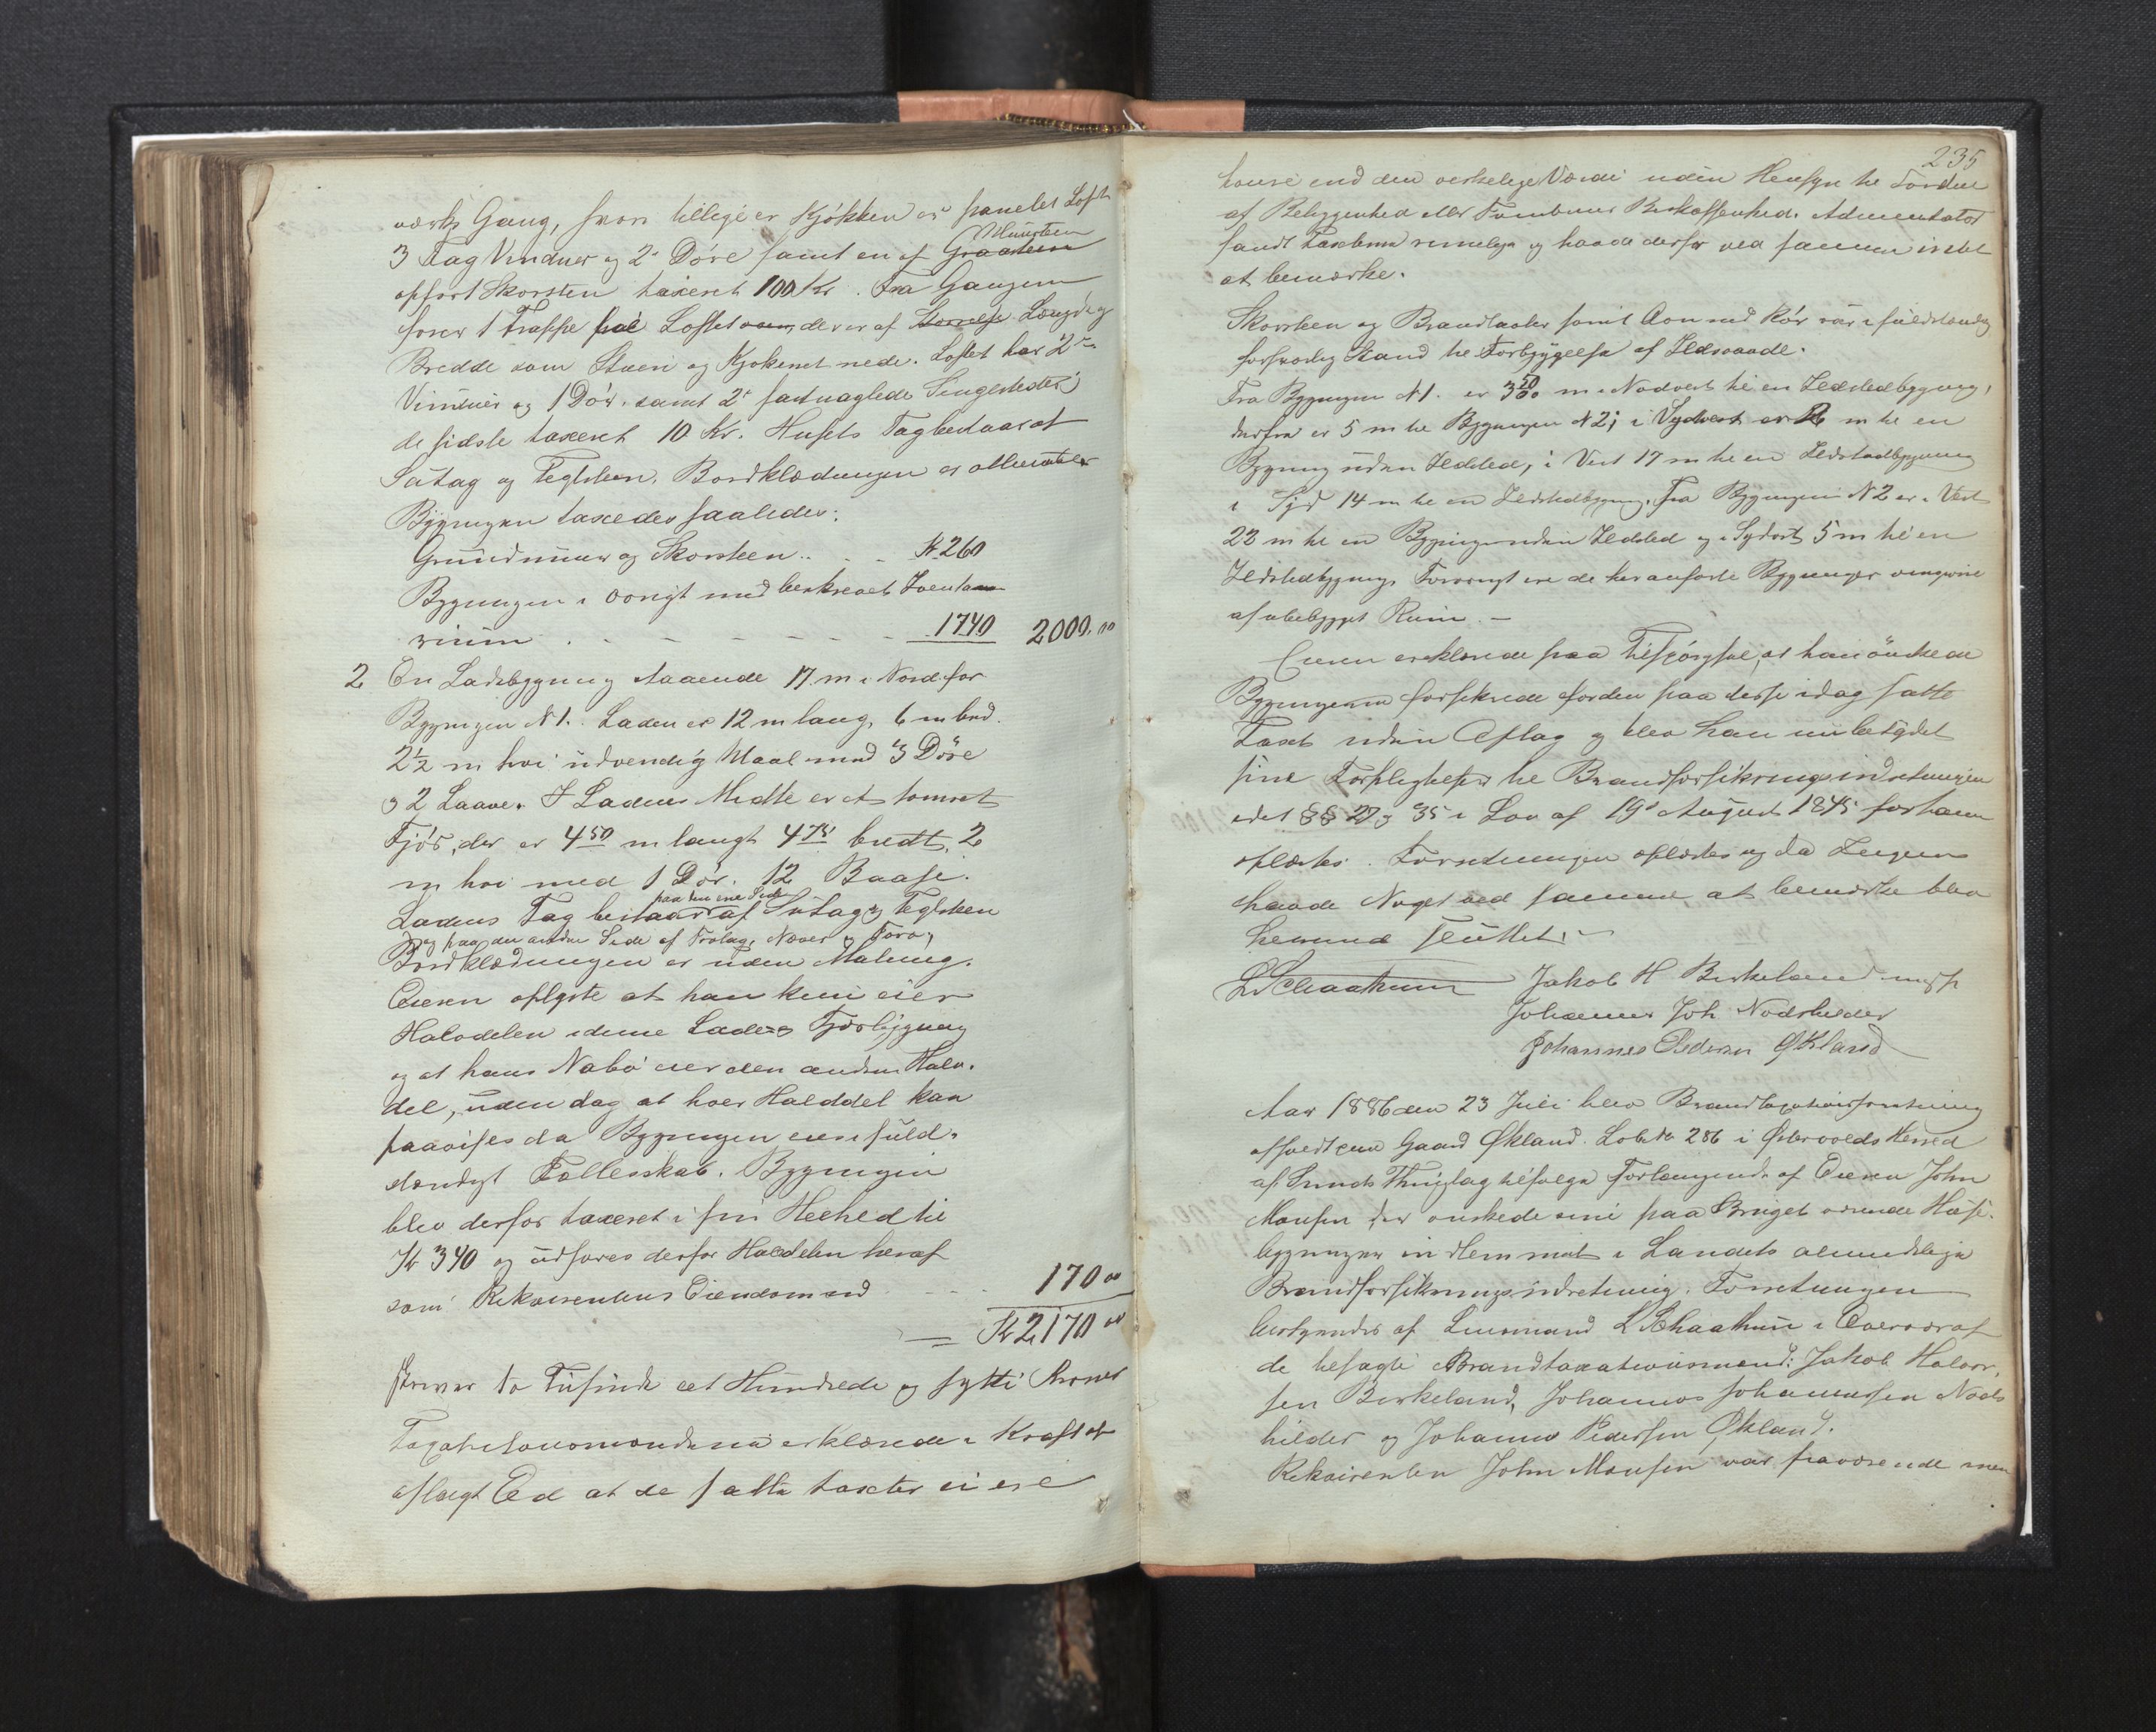 værks Gang, hvori tillige er Kjøkken og panelet Loft
3 Fag Vinduer og 2 Døre samt en af Graasteen Muursteen
opført Skorsten taxeret 100 Kr. Fra Gangen
fører 1 Trappe paa Loftet der er af Længde og
Bredde som Stuen og Kjøkenet nede. Loftet har 2
Vinduer og 1 Dør samt 2 fastnaglede Sengesteder
de sidste taxeret 10 Kr. Husets Tag bestaar af
Sutag og Teglsteen. Bordklædningen er
Bygningen taxeredes saaledes:
Grundmuur og Skorsteen . . - Kr 260
Bygningen i øvrigt med beskrevet Inventa
rium . - - - - - - 1740 2000.00
2 En Ladebygning staaende 17 m i Nord for
Bygningen N 1. Laden er 12 m lang, 6 m bred.
2½ m høi udvendig Maal med 3 Døre
og 2 Laaver. I Ladens Midte er et tømret
Fjøs, der er 4.50 m langt 4.75 bredt, 2
m høi med 1 Dør. 12 Baase.
Ladens Tag bestaar paa den ene Side af Sutag og Teglsteen
og paa den anden Side af Trotag, Næver og Torv,
Bordklædningen er uden Maling.
Eieren oplyste at han kun eier
Halvdelen i denne Lade og Fjøsbygning
og at hans Nabo eier den anden Halv-
del, uden dog at hver Halvdel kan
paavises da Bygningen eies i fuld-
stændigt Fællesskab. Bygningen
blev derfor taxeret i sin Heelhed til
Kr 340 og udføres derfor Halvdelen heraf
som Rekvirentens Eiendom med - - - 170 00
— Kr 2170 00
skriver to Tusinde et Hundrede og sytti Kroner
Taxationsmændene erklærede i Kraft af
aflagt Ed at de satte Taxter ei ere
235
høiere end den virkelige Værdi uden Hensyn til Fordele
af Beliggenhed eller Tomtens Beskaffenhed. Administrator
fandt Taxterne rimelige og havde derfor ved samme intet
at bemærke.
Skorsteen og Brandtaxter samt Ovn med Rør var i fuldstændig
forsvarlig Stand til Forbyggelse af Ildsvaade.
Fra Bygningen N 1. er 3 50 m i Nordvest til en Ildstedbygning,
derfra er 5 m til Bygningen N 2; i Sydvest er m til en
Bygning uden Ildsted, i Vest 17 m til en Ildstedbygning
i Syd 14 m til en Ildstedbygning. Fra Bygningen N 2 er i Vest
22 m til en Bygning uden Ildsted og i Sydost 5 m til en
Ildstedbygning. Forøvrigt ere de heranførte Bygninger omgivne
af ubebygget Rum. —
Eieren erklærede paa Tilspørgsel, at han ønskede
Bygningerne forsikrede for den paa disse idag satte
Taxt uden Afslag og blev han nu betydet
sine Forpligtelser til Brandforsikringsindretningen
idet §§ 27 og 35 i Lov af 19 August 1845 for ham
oplæstes. Forretningen oplæstes og da Ingen
havde Noget ved samme at bemærke blev
hermed sluttet. —
L Schaathun Jakob H Birkeland m p
Johannes Joh Nodshelder
Johannes Pedersen Økland
Aar 1886 den 23 Juli blev Brandtaxationsforretning
afholdt paa Gaard Økland. Løbe No 286 i Østervolds Herred
af Sunds Thinglag tilfølge Forlangende af Eieren John
Monsen der ønskede sine paa Bruget værende Huus-
bygninger indlemmet i Landets almindelige
Brandforsikringsindretning. Forretningen
bestyredes af Lensmand L Schaathun i Overvær af
de tilsagte Brandtaxationsmænd: Jakob Halvor-
sen Birkeland, Johannes Johannessen Nods
hilder og Johannes Pedersen Økland.
Rekvirenten John Monsen var fraværende men